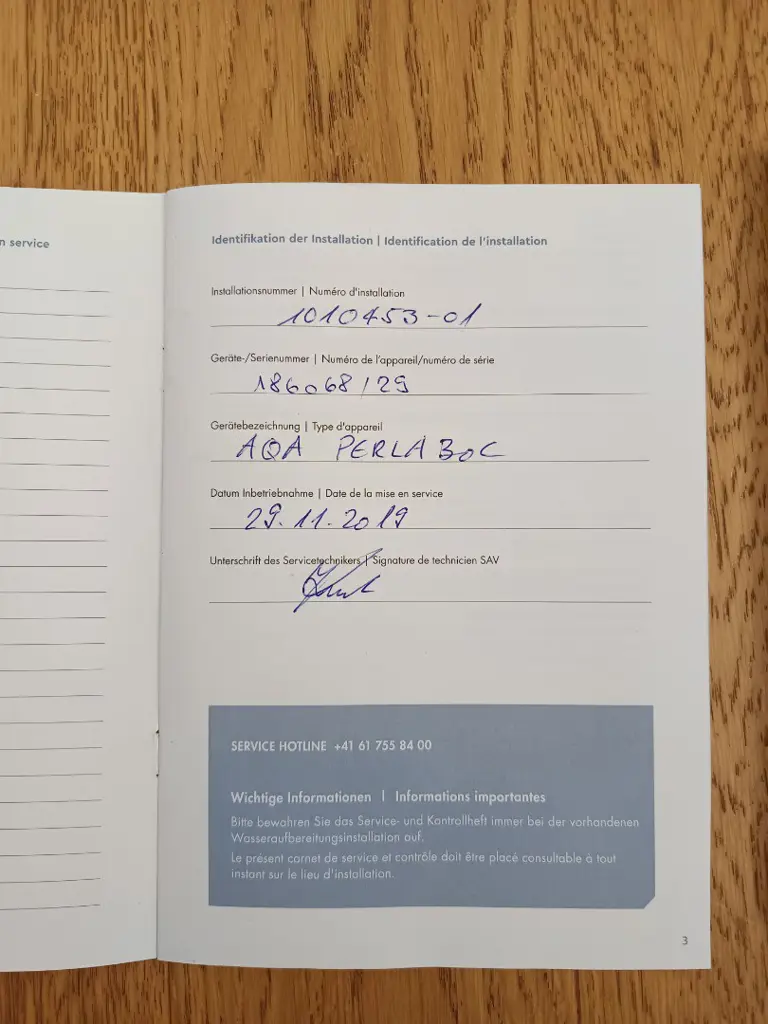 n service
Identifikation der Installation | Identification de l'installation
Installationsnummer | Numéro d'installation
1010453-01
Geräte-/Serienummer | Numéro de l'appareil/numéro de série
186068/29
Gerätebezeichnung | Type d'appareil
AQA PERLA BOC
Datum Inbetriebnahme | Date de la mise en service
29.11.2019
Unterschrift des Servicetechnikers | Signature de technicien SAV
SERVICE HOTLINE +41 61 755 84 00
Wichtige Informationen | Informations importantes
Bitte bewahren Sie das Service- und Kontrollheft immer bei der vorhandenen
Wasseraufbereitungsinstallation auf.
Le présent carnet de service et contrôle doit être placé consultable à tout
instant sur le lieu d'installation.
3